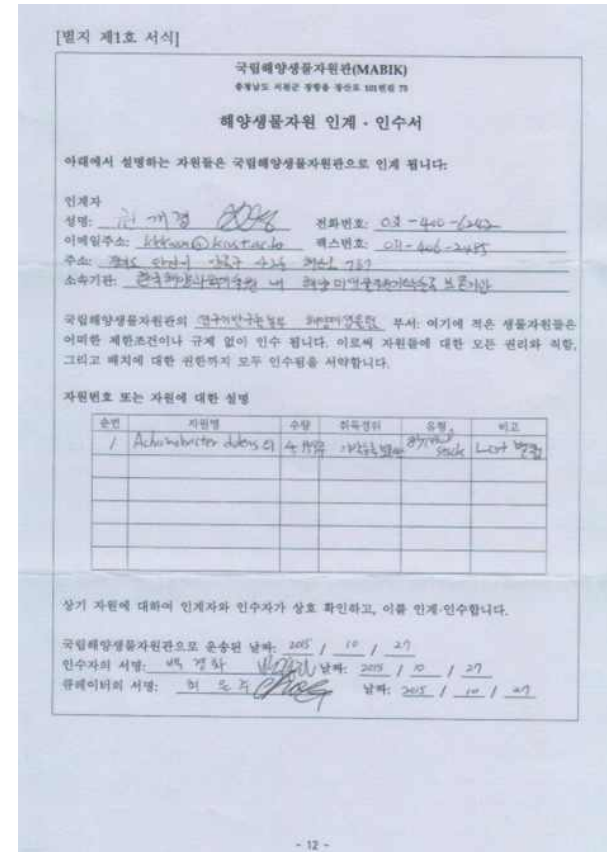 [별지 제1호 서식]
국립해양생물자원관(MABIK)
충청남도 서천군 장항읍 장산로 101번길 75
해양생물자원 인계 · 인수서
아래에서 설명하는 자원들은 국립해양생물자원관으로 인계 됩니다:
인계자
성명: 권개경 전화번호: 031-400-6242
이메일주소: kkkwon@kiost.ac.kr 팩스번호: 031-406-2495
주소: 경기도 안산시 상록구 787
소속기관: 한국해양과학기술원 내
국립해양생물자원관의 부서: 여기에 적은 생물자원들은
어떠한 제한조건이나 규제 없이 인수 됩니다. 이로써 자원들에 대한 모든 권리와 직함,
그리고 배치에 대한 권한까지 모두 인수됨을 서약합니다.
자원번호 또는 자원에 대한 설명
순번 자원명 수량 취득경위 유형 비고
1 stock List 별첨
상기 자원에 대하여 인계자와 인수자가 상호 확인하고, 이를 인계·인수합니다.
국립해양생물자원관으로 운송된 날짜: 2015 / 10 / 27
인수자의 서명: 백경화 날짜: 2015 / 10 / 27
큐레이터의 서명: 날짜: 2015 / 10 / 27
- 12 -